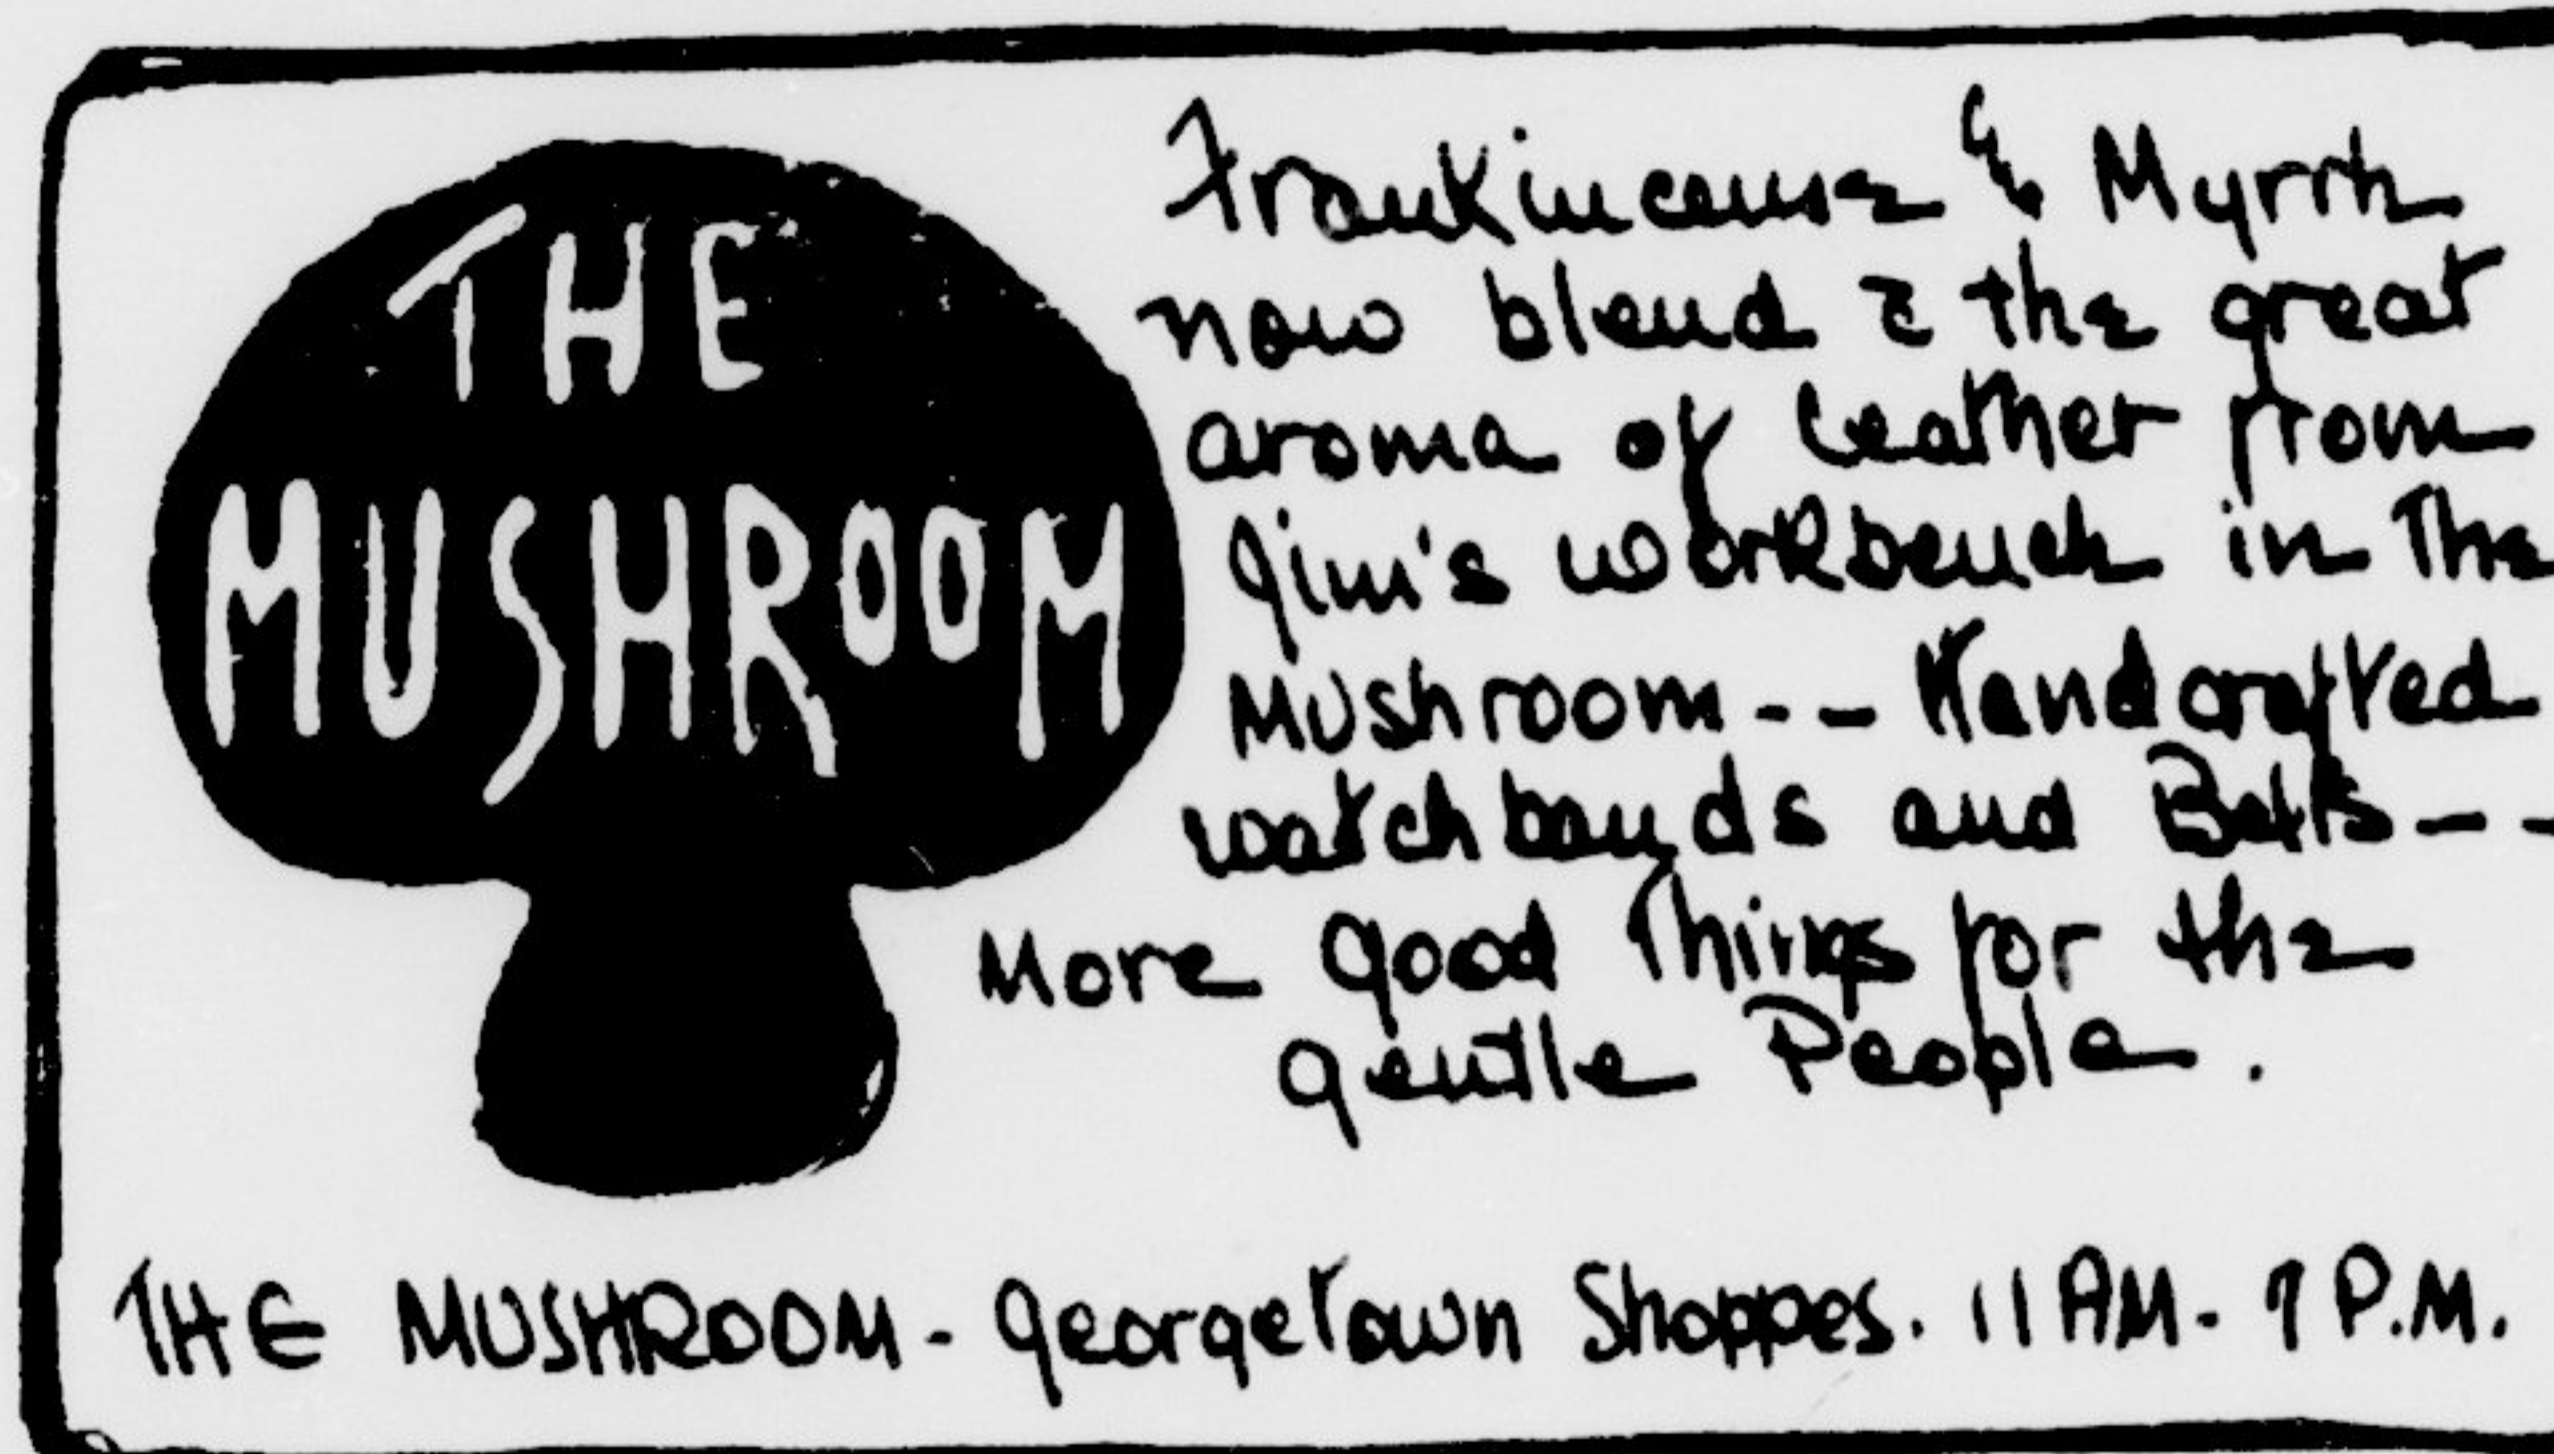 THE
MUSHROOM
Frankincense & Myrrh
now blend c̄ the great
aroma of leather from
Jim's workbench in the
Mushroom -- Handcrafted
watchbands and Belts --
More good Things for the
gentle People.
THE MUSHROOM - Georgetown Shoppes. 11 AM - 7 P.M.